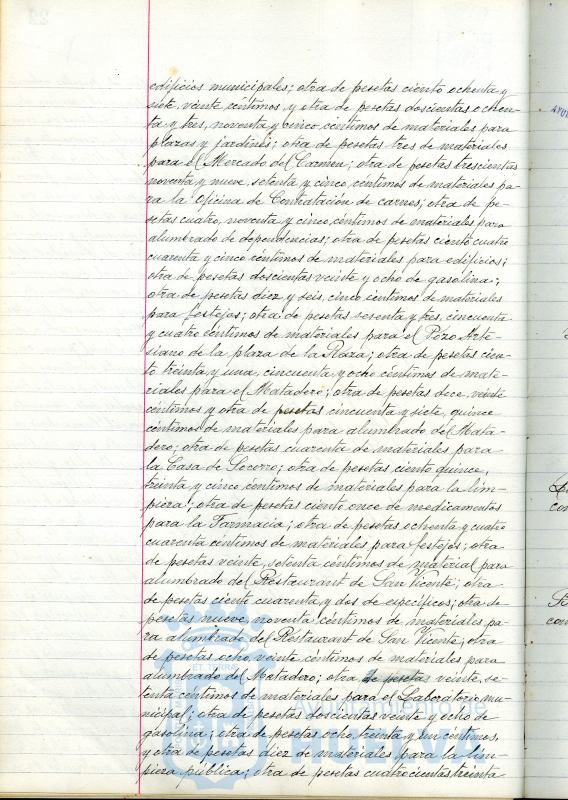 edificios municipales; otra de pesetas ciento ochenta y
siete, veinte céntimos, y otra de pesetas doscientas ochen-
ta y tres, noventa y cinco céntimos de materiales para
plazas y jardines; otra de pesetas tres de materiales
para el Mercado del Carmen; otra de pesetas trescientas
noventa y nueve, setenta y cinco, céntimos de materiales pa-
ra la Oficina de Contratación de carnes; otra de pe-
setas cuatro, noventa y cinco, céntimos de materiales para
alumbrado de dependencias; otra de pesetas ciento cuatro
cuarenta y cinco céntimos de materiales para edificios;
otra de pesetas doscientas veinte y ocho de gasolina;
otra de pesetas diez y seis, cinco céntimos de materiales
para festejos; otra de pesetas sesenta y tres, cincuenta
y cuatro céntimos de materiales para el Pozo Arte-
siano de la plaza de la Rosa; otra de pesetas cien-
to treinta y una, cincuenta y ocho céntimos de mate-
riales para el Matadero; otra de pesetas doce, veinte
céntimos y otra de pesetas cincuenta y siete, quince
céntimos de materiales para alumbrado del Mata-
dero; otra de pesetas cuarenta de materiales para
la Casa de Socorro; otra de pesetas ciento quince,
treinta y cinco céntimos de materiales para la lim-
pieza; otra de pesetas ciento once de medicamentos
para la Farmacia; otra de pesetas ochenta y cuatro
cuarenta céntimos de materiales para festejos; otra
de pesetas veinte, setenta céntimos de material para
alumbrado del Restaurant de San Vicente; otra
de pesetas ciento cuarenta y dos de específicos; otra de
pesetas nueve, noventa céntimos de materiales pa-
ra alumbrado del Restaurant de San Vicente; otra
de pesetas ocho, veinte céntimos de materiales para
alumbrado del Matadero; otra de pesetas veinte, se-
tenta céntimos de materiales para el Laboratorio mu-
nicipal; otra de pesetas doscientas veinte y ocho de
gasolina; otra de pesetas ocho, treinta y un céntimos,
y otra de pesetas diez de materiales para la lim-
pieza pública; otra de pesetas cuatrocientas treinta
Ayuntamiento de